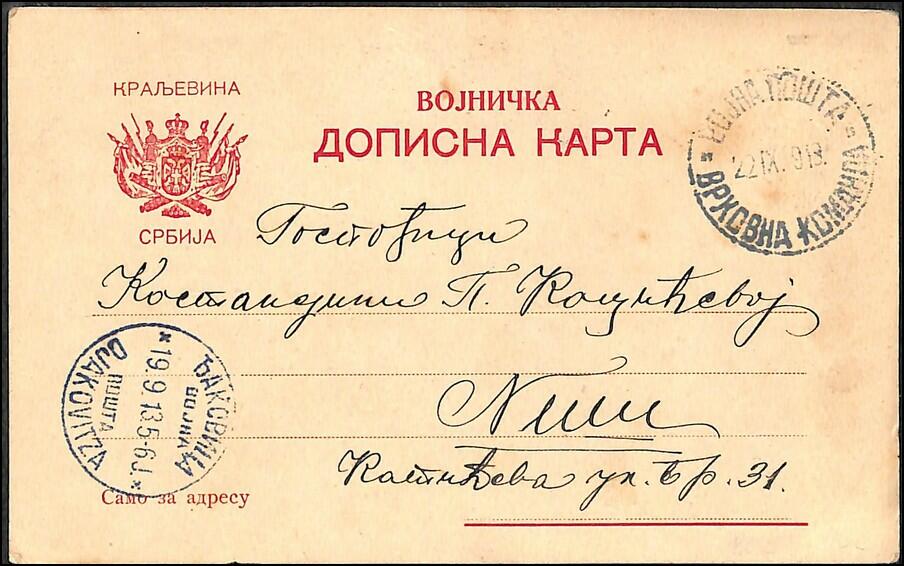 КРАЉЕВИНА
СРБИЈА
ВОЈНИЧКА
ДОПИСНА КАРТА
ВОЈНА ПОШТА
22 IX. 913.
ВРХОВНА КОМАНДА
Госпођици
Костандини П.
Ниш
ул. бр. 31.
ЂАКОВИЦА
ВОЈНА
* 19.9.13.5-6J *
ПОШТА
DJAKOVITZA
Само за адресу